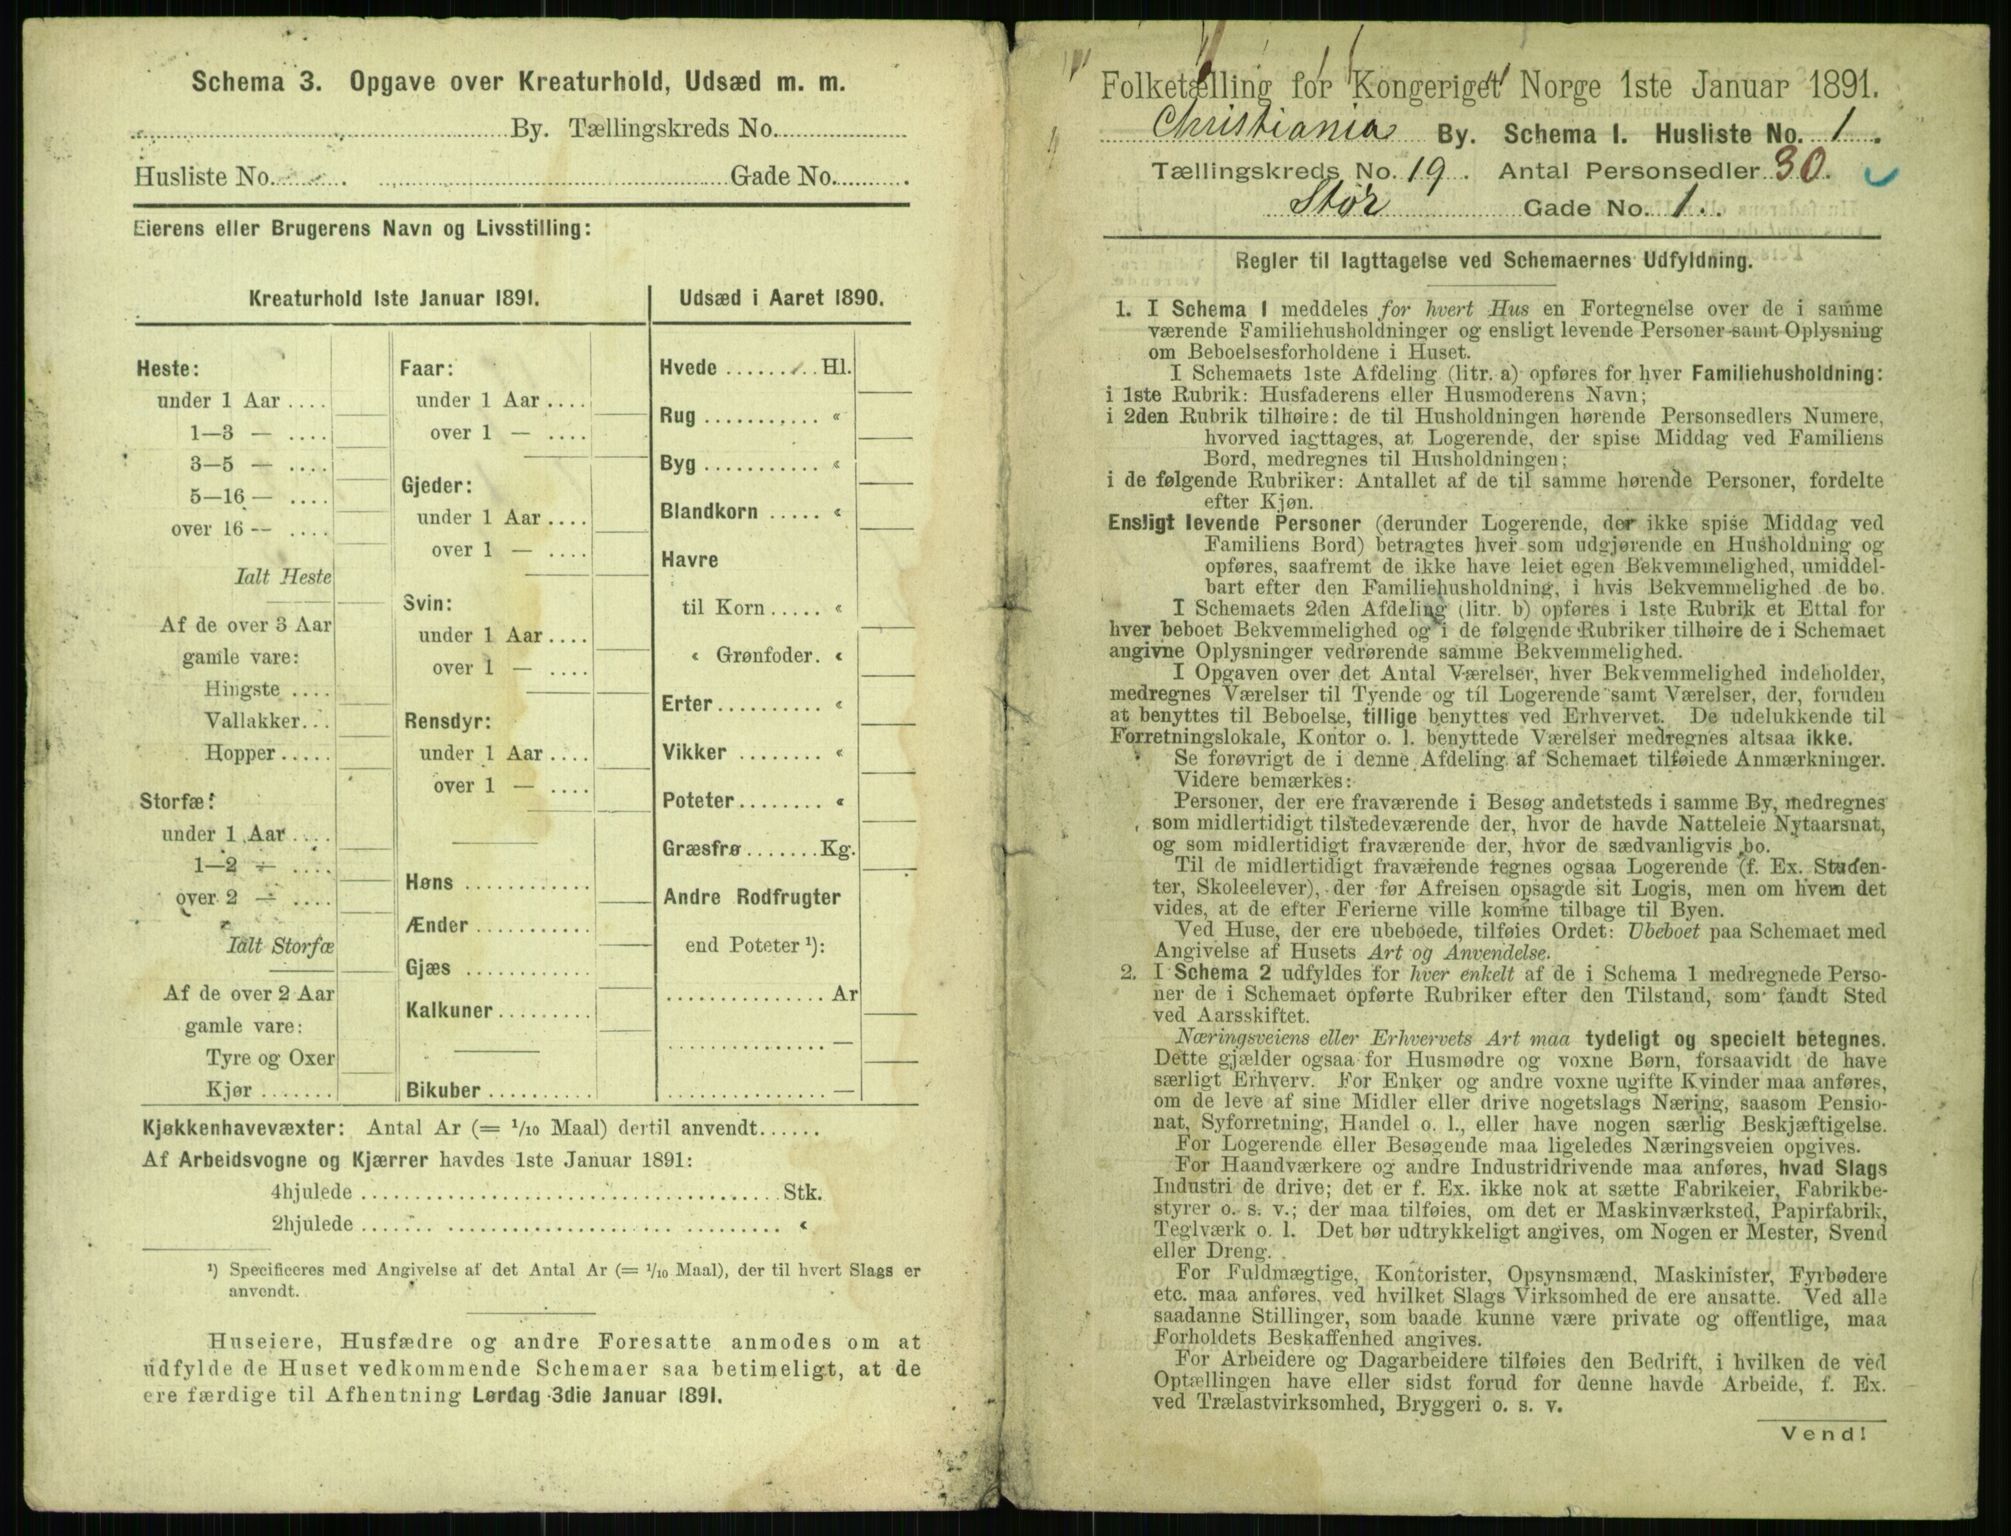 Schema 3. Opgave over Kreaturhold, Udsæd m. m.
By. Tællingskreds No.
Husliste No. Gade No.
Eierens eller Brugerens Navn og Livsstilling:
Kreaturhold 1ste Januar 1891.
Heste:
under 1 Aar
1—3 —
3—5 —
5—16 —
over 16 —
Ialt Heste
Af de over 3 Aar
gamle vare:
Hingste
Vallakker
Hopper
Storfæ:
under 1 Aar
1—2 —
over 2 —
Ialt Storfæ
Af de over 2 Aar
gamle vare:
Tyre og Oxer
Kjør
Faar:
under 1 Aar
over 1 —
Gjeder:
under 1 Aar
over 1 —
Svin:
under 1 Aar
over 1 —
Rensdyr:
under 1 Aar
over 1 —
Høns
Ænder
Gjæs
Kalkuner
Bikuber
Udsæd i Aaret 1890.
Hvede Hl.
Rug «
Byg «
Blandkorn «
Havre
til Korn «
« Grønfoder. «
Erter «
Vikker «
Poteter «
Græsfrø Kg.
Andre Rodfrugter
end Poteter ¹):
Ar
—
—
Kjøkkenhavevæxter: Antal Ar (= 1/10 Maal) dertil anvendt
Af Arbeidsvogne og Kjærrer havdes 1ste Januar 1891:
4hjulede Stk.
2hjulede «
¹) Specificeres med Angivelse af det Antal Ar (= 1/10 Maal), der til hvert Slags er
anvendt.
Huseiere, Husfædre og andre Foresatte anmodes om at
udfylde de Huset vedkommende Schemaer saa betimeligt, at de
ere færdige til Afhentning Lørdag 3die Januar 1891.
Folketælling for Kongeriget Norge 1ste Januar 1891.
Christiania By. Schema 1. Husliste No. 1.
Tællingskreds No. 19. Antal Personsedler 30.
Stor Gade No. 1.
Regler til Iagttagelse ved Schemaernes Udfyldning.
1. I Schema 1 meddeles for hvert Hus en Fortegnelse over de i samme
værende Familiehusholdninger og ensligt levende Personer samt Oplysning
om Beboelsesforholdene i Huset.
I Schemaets 1ste Afdeling (litr. a) opføres for hver Familiehusholdning:
i 1ste Rubrik: Husfaderens eller Husmoderens Navn;
i 2den Rubrik tilhøire: de til Husholdningen hørende Personsedlers Numere,
hvorved iagttages, at Logerende, der spise Middag ved Familiens
Bord, medregnes til Husholdningen;
i de følgende Rubriker: Antallet af de til samme hørende Personer, fordelte
efter Kjøn.
Ensligt levende Personer (derunder Logerende, der ikke spise Middag ved
Familiens Bord) betragtes hver som udgjørende en Husholdning og
opføres, saafremt de ikke have leiet egen Bekvemmelighed, umiddel-
bart efter den Familiehusholdning, i hvis Bekvemmelighed de bo.
I Schemaets 2den Afdeling (litr. b) opføres i 1ste Rubrik et Ettal for
hver beboet Bekvemmelighed og i de følgende Rubriker tilhøire de i Schemaet
angivne Oplysninger vedrørende samme Bekvemmelighed.
I Opgaven over det Antal Værelser, hver Bekvemmelighed indeholder,
medregnes Værelser til Tyende og til Logerende samt Værelser, der, foruden
at benyttes til Beboelse, tillige benyttes ved Erhvervet. De udelukkende til
Forretningslokale, Kontor o. l. benyttede Værelser medregnes altsaa ikke.
Se forøvrigt de i denne Afdeling af Schemaet tilføiede Anmærkninger.
Videre bemærkes:
Personer, der ere fraværende i Besøg andetsteds i samme By, medregnes
som midlertidigt tilstedeværende der, hvor de havde Natteleie Nytaarsnat,
og som midlertidigt fraværende der, hvor de sædvanligvis bo.
Til de midlertidigt fraværende regnes ogsaa Logerende (f. Ex. Studen-
ter, Skoleelever), der før Afreisen opsagde sit Logis, men om hvem det
vides, at de efter Ferierne ville komme tilbage til Byen.
Ved Huse, der ere ubeboede, tilføies Ordet: Ubeboet paa Schemaet med
Angivelse af Husets Art og Anvendelse.
2. I Schema 2 udfyldes for hver enkelt af de i Schema 1 medregnede Perso-
ner de i Schemaet opførte Rubriker efter den Tilstand, som fandt Sted
ved Aarsskiftet.
Næringsveiens eller Erhvervets Art maa tydeligt og specielt betegnes.
Dette gjælder ogsaa for Husmødre og voxne Børn, forsaavidt de have
særligt Erhverv. For Enker og andre voxne ugifte Kvinder maa anføres,
om de leve af sine Midler eller drive nogetslags Næring, saasom Pensio-
nat, Syforretning, Handel o. l., eller have nogen særlig Beskjæftigelse.
For Logerende eller Besøgende maa ligeledes Næringsveien opgives.
For Haandværkere og andre Industridrivende maa anføres, hvad Slags
Industri de drive; det er f. Ex. ikke nok at sætte Fabrikeier, Fabrikbe-
styrer o. s. v.; der maa tilføies, om det er Maskinværksted, Papirfabrik,
Teglværk o. l. Det bør udtrykkeligt angives, om Nogen er Mester, Svend
eller Dreng.
For Fuldmægtige, Kontorister, Opsynsmænd, Maskinister, Fyrbødere
etc. maa anføres, ved hvilket Slags Virksomhed de ere ansatte. Ved alle
saadanne Stillinger, som baade kunne være private og offentlige, maa
Forholdets Beskaffenhed angives.
For Arbeidere og Dagarbeidere tilføies den Bedrift, i hvilken de ved
Optællingen have eller sidst forud for denne havde Arbeide, f. Ex.
ved Trælastvirksomhed, Bryggeri o. s. v.
Vend!